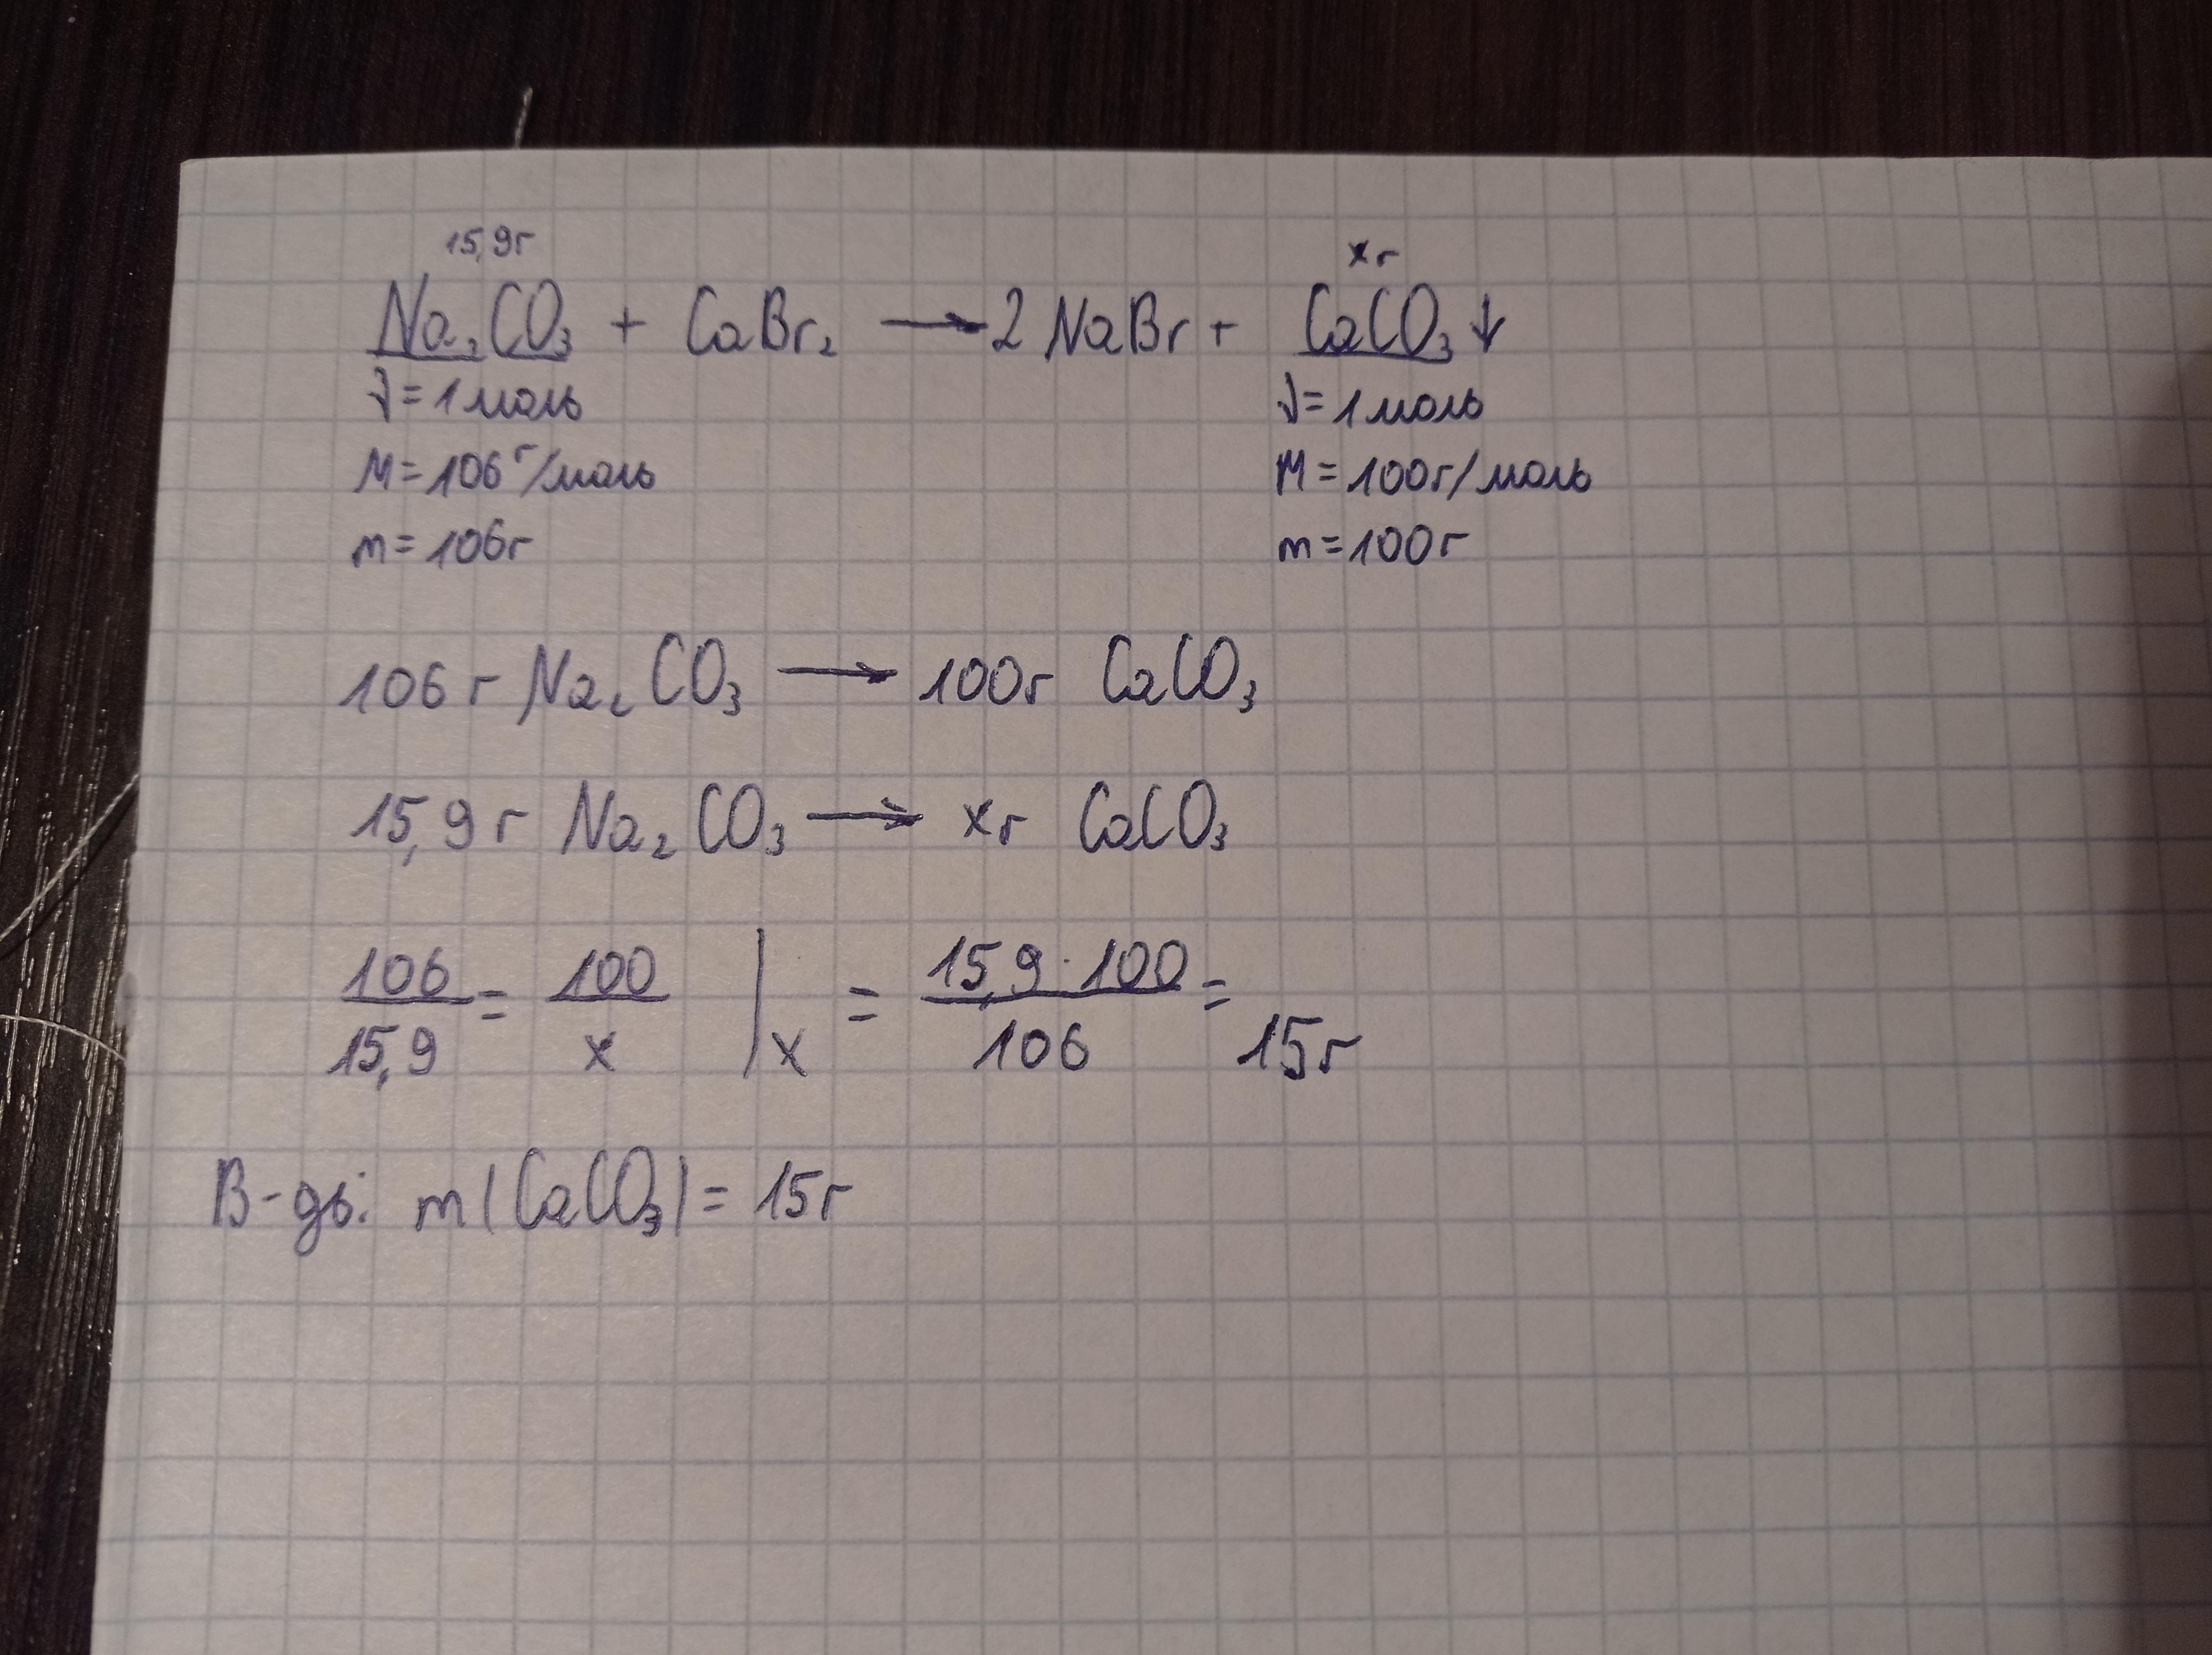 15,9г xг
Na₂CO₃ + CaBr₂ → 2 NaBr + CaCO₃↓
ν=1моль ν=1моль
M=106г/моль M=100г/моль
m=106г m=100г
106 г Na₂CO₃ → 100г CaCO₃
15,9 г Na₂CO₃ → xг CaCO₃
106/15,9 = 100/x | x = 15,9·100/106 = 15г
В-дь: m(CaCO₃)= 15г